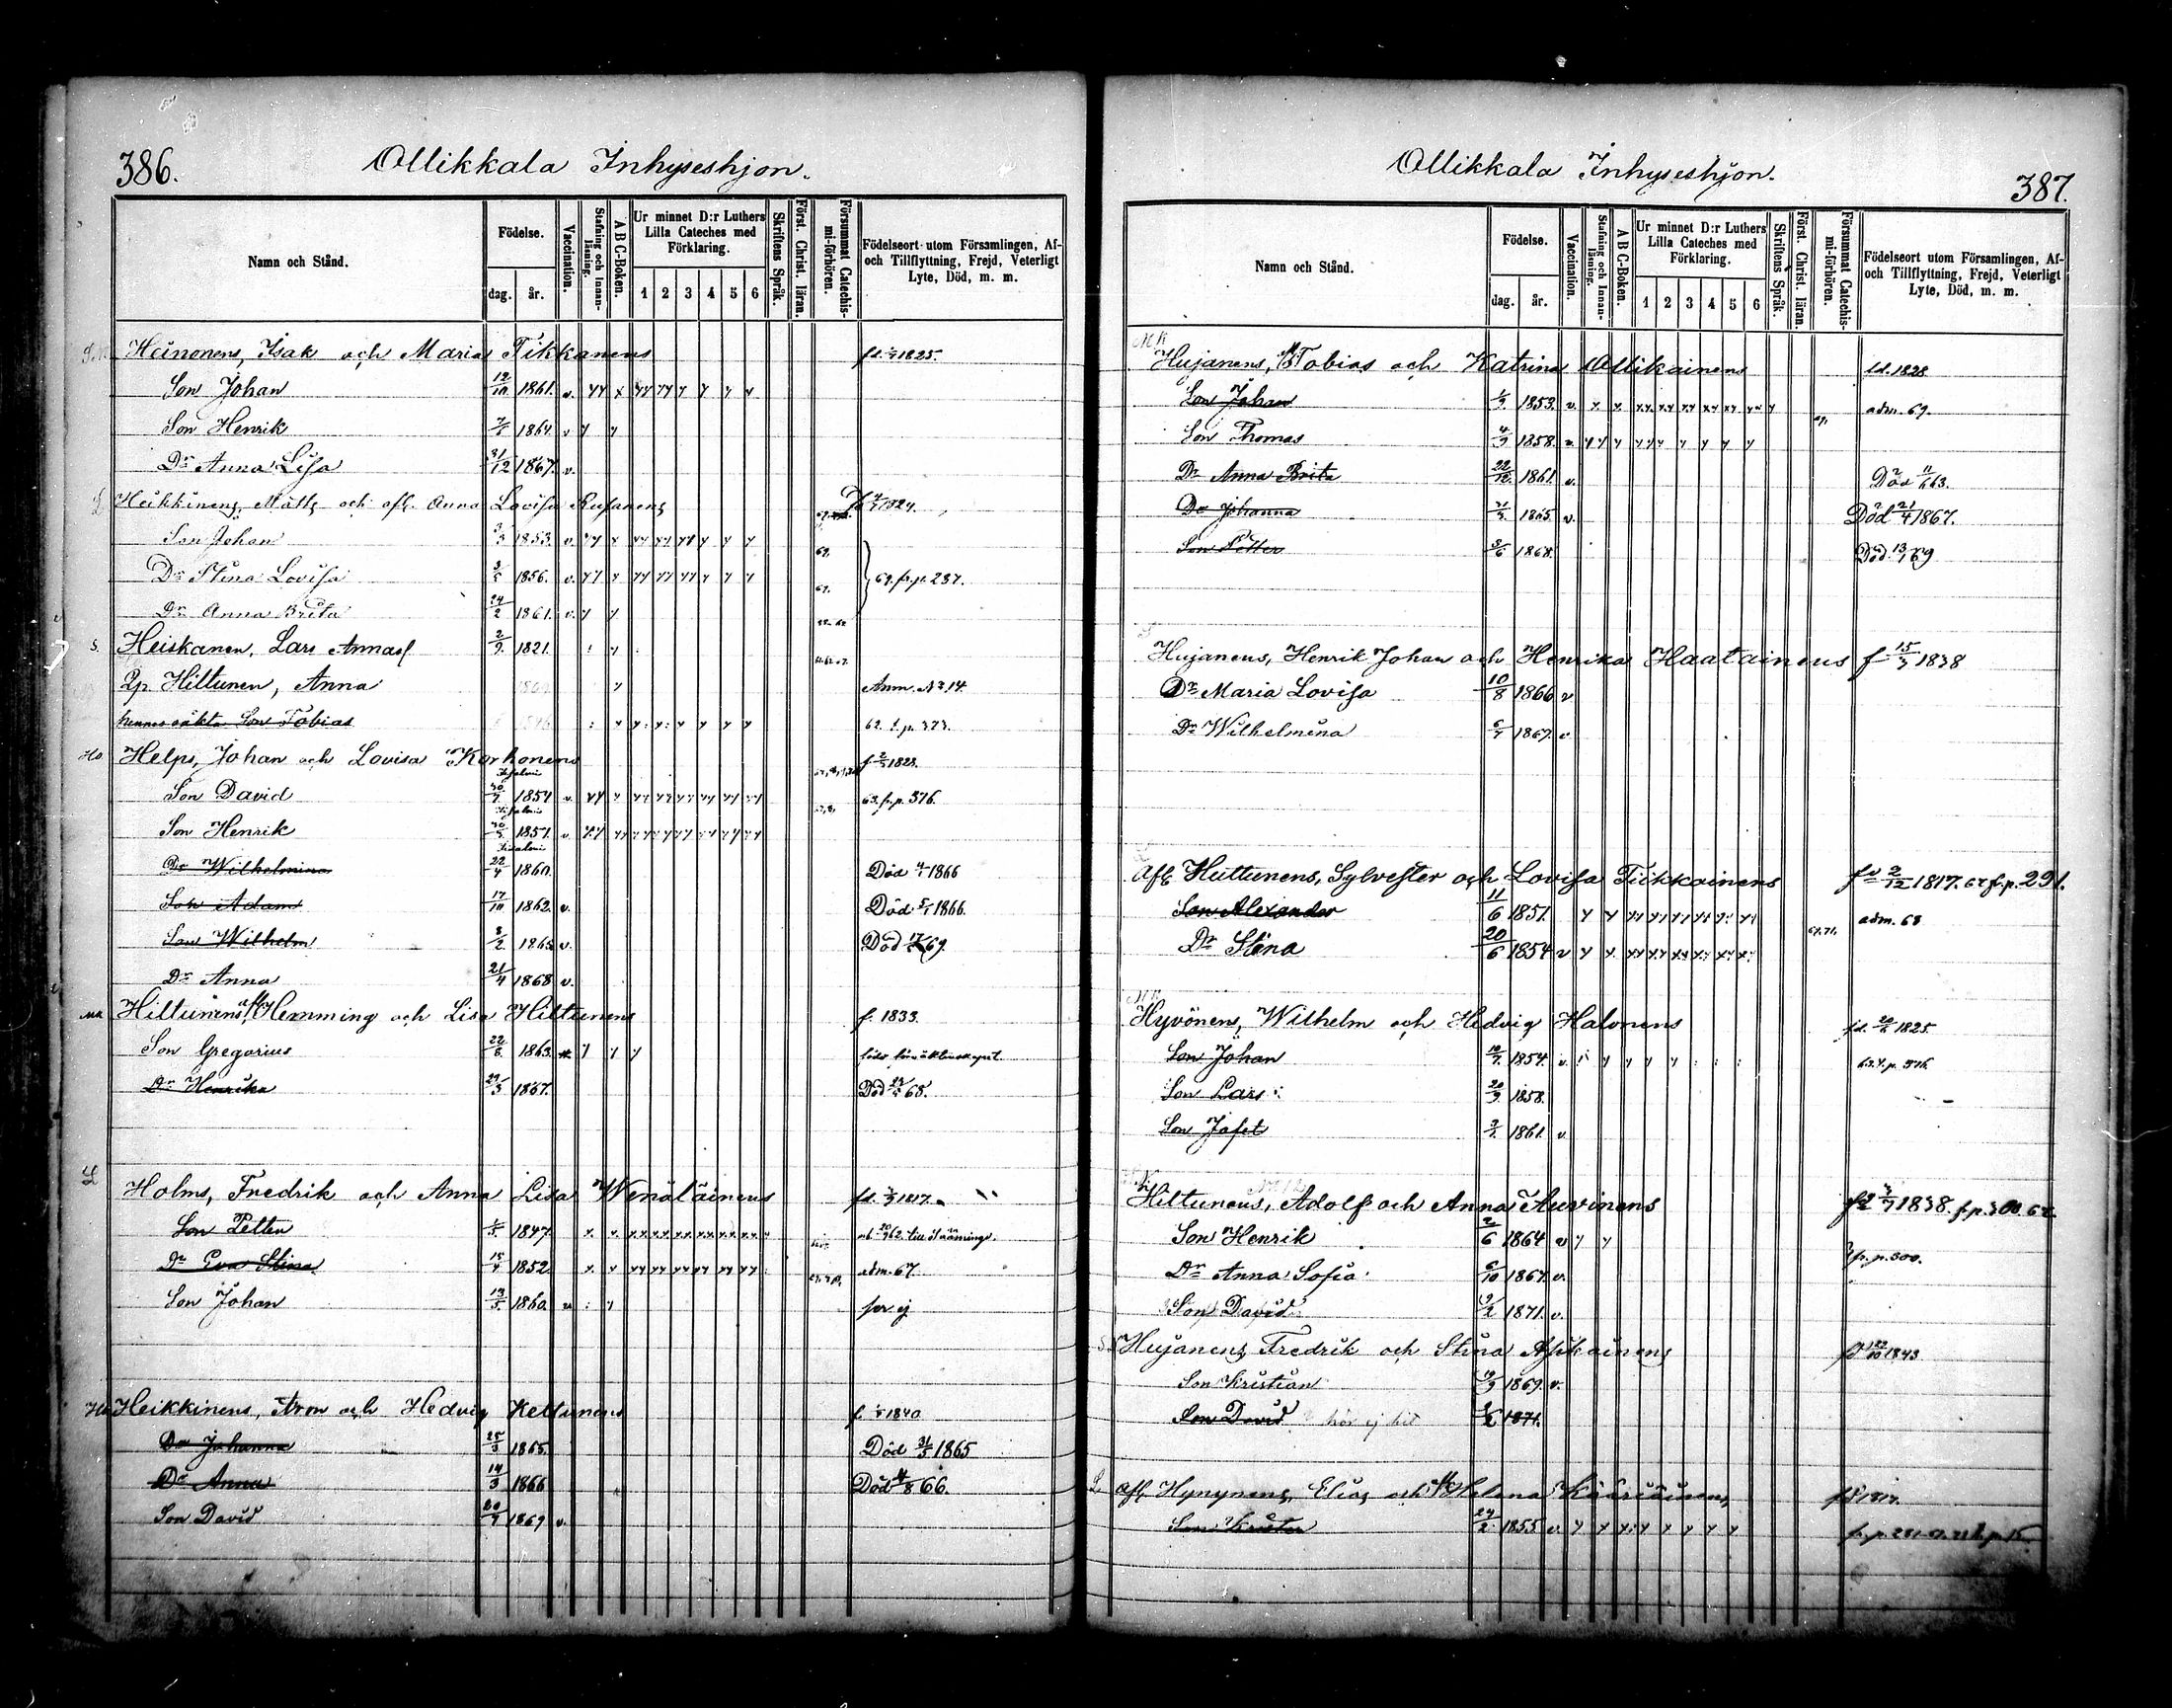 386.
Ollikkala Inhyseshjon.
Namn och Stånd.
Födelse.
dag. år.
Vaccination.
Stafning och Innan-läsning.
A B C-Boken.
Ur minnet D:r Luthers Lilla Cateches med Förklaring.
1 2 3 4 5 6
Skriftens Språk.
Först. Christ. läran.
Försummat Catechis-mi-förhören.
Födelseort utom Församlingen, Af- och Tillflyttning, Frejd, Veterligt Lyte, Död, m. m.
Heinonens, Isak och Maria Tikkanens 1825.
Son Johan 12/10 1861. v.
Son Henrik 1864. v
Dr Anna Lisa 31/12 1867. v.
Heikkinens, Matts och afl. Anna Lovisa Rusanens 1824.
Son Johan 1853. v. 69.
Dr Stina Lovisa 1856. v. 67. 69. fr. p. 237.
Dr Anna Brita 24/2 1861. v.
S. Heiskanen, Lars Annas 2/9 1821.
Qp. Hiltunen, Anna Anm. No 14.
hennes oäkta Son Tobias 62. t. p. 373.
Ho Helps, Johan och Lovisa Korhonens 1823.
Son David 30/7 1854 v. 63. fr. p. 376.
Son Henrik 1857. v.
Dr Wilhelmina 22/4 1860. Död 1866
Son Adam 17/10 1862. v. Död 5/1 1866.
Son Wilhelm 3/2 1865 v. Död 69.
Dr Anna 21/4 1868 v.
Hiltunens, afl. Hemming och Lisa Hiltunens f. 1833.
Son Gregorius 22/6 1863.
Dr Henrika 29/3 1867. Död 68.
L Holms, Fredrik och Anna Lisa Wenäläinens 1817.
Son Petter 1847.
Dr Eva Stina 1852. adm. 67.
Son Johan 13/5 1860.
Heikkinens, Aron och Hedvig Kettunens f. 1840.
Dr Johanna 25/3 1865. Död 31/5 1865
Dr Anna 14/3 1866 Död 66.
Son David 20/7 1869 v.
Ollikkala Inhyseshjon.
387.
Namn och Stånd.
Födelse.
dag. år.
Vaccination.
Stafning och Innan-läsning.
A B C-Boken.
Ur minnet D:r Luthers Lilla Cateches med Förklaring.
1 2 3 4 5 6
Skriftens Språk.
Först. Christ. läran.
Försummat Catechis-mi-förhören.
Födelseort utom Församlingen, Af- och Tillflyttning, Frejd, Veterligt Lyte, Död, m. m.
Hujanens, Tobias och Katrina Ollikainens fd. 1828
Son Johan 1853. v. adm. 69.
Son Thomas 4/9 1858.
Dr Anna Brita 22/12 1861. v. Död 63.
Dr Johanna 1865. v. Död 21/4 1867.
Son Petter 3/6 1868. Död 13/1 69
Hujanens, Henrik Johan och Henrika Haatainens f 15/3 1838
Dr Maria Lovisa 10/8 1866 v
Dr Wilhelmina 1867. v.
Afl. Huttunens, Sylvester och Lovisa Tikkainens 2/12 1817. 62 fr. p. 291.
Son Alexander 11/6 1851. adm. 68
Dr Stina 20/6 1854 v 67.71.
Hyvönens, Wilhelm och Hedvig Halonens fd. 1825.
Son Johan 1854. v.
Son Lars 20/9 1858.
Son Jafet 1861. v.
Hiltunens, Adolf och Anna Auvinens 1838. f. p. 300. 62
Son Henrik 2/6 1864 v
Dr Anna Sofia 6/10 1867. v. fr. p. 300.
Son David 1871. v.
Hujanens, Fredrik och Stina Asikainens 1843
Son Kristian 1869. v.
Son David hör ej hit 1871.
L. afl. Hynynens, Elias och Helena Kääriäinens 1817.
Son Krister 24/2 1855 v.